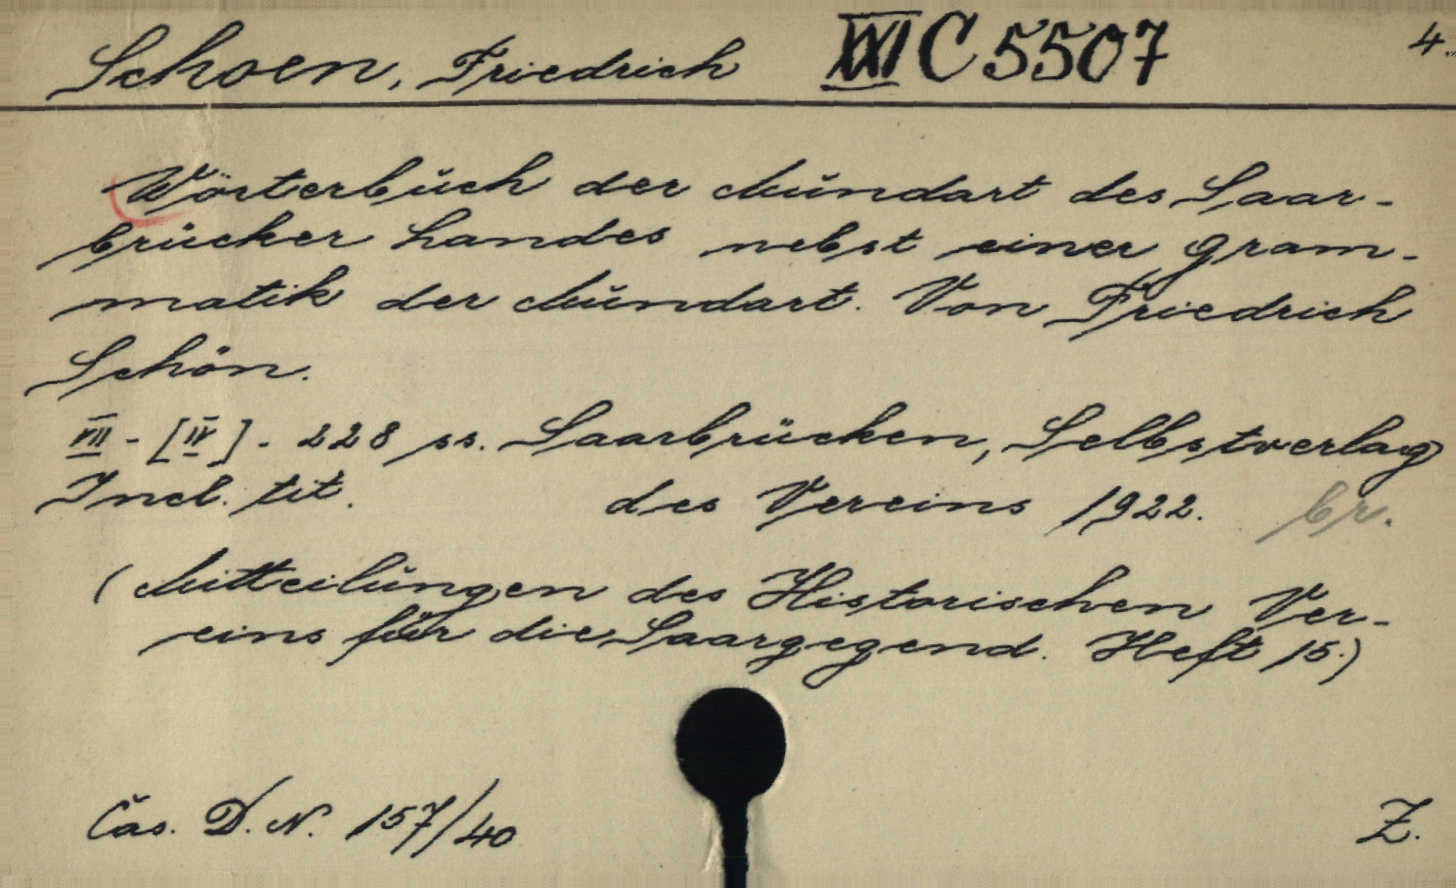 Schoen, Friedrich XXI C 5507 4.
Wörterbŭch der Mŭndart des Saar-
brücker Landes nebst einer Gram-
matik der Mŭndart. Von Friedrich
Schön.
VII - [IV] - 228 ss. Saarbrücken, Selbstverlag
Incl. tit. des Vereins 1922. br.
(Mitteilŭngen des Historischen Ver-
eins für die Saargegend. Heft 15.)
Čas. D. N. 157/40 Z.